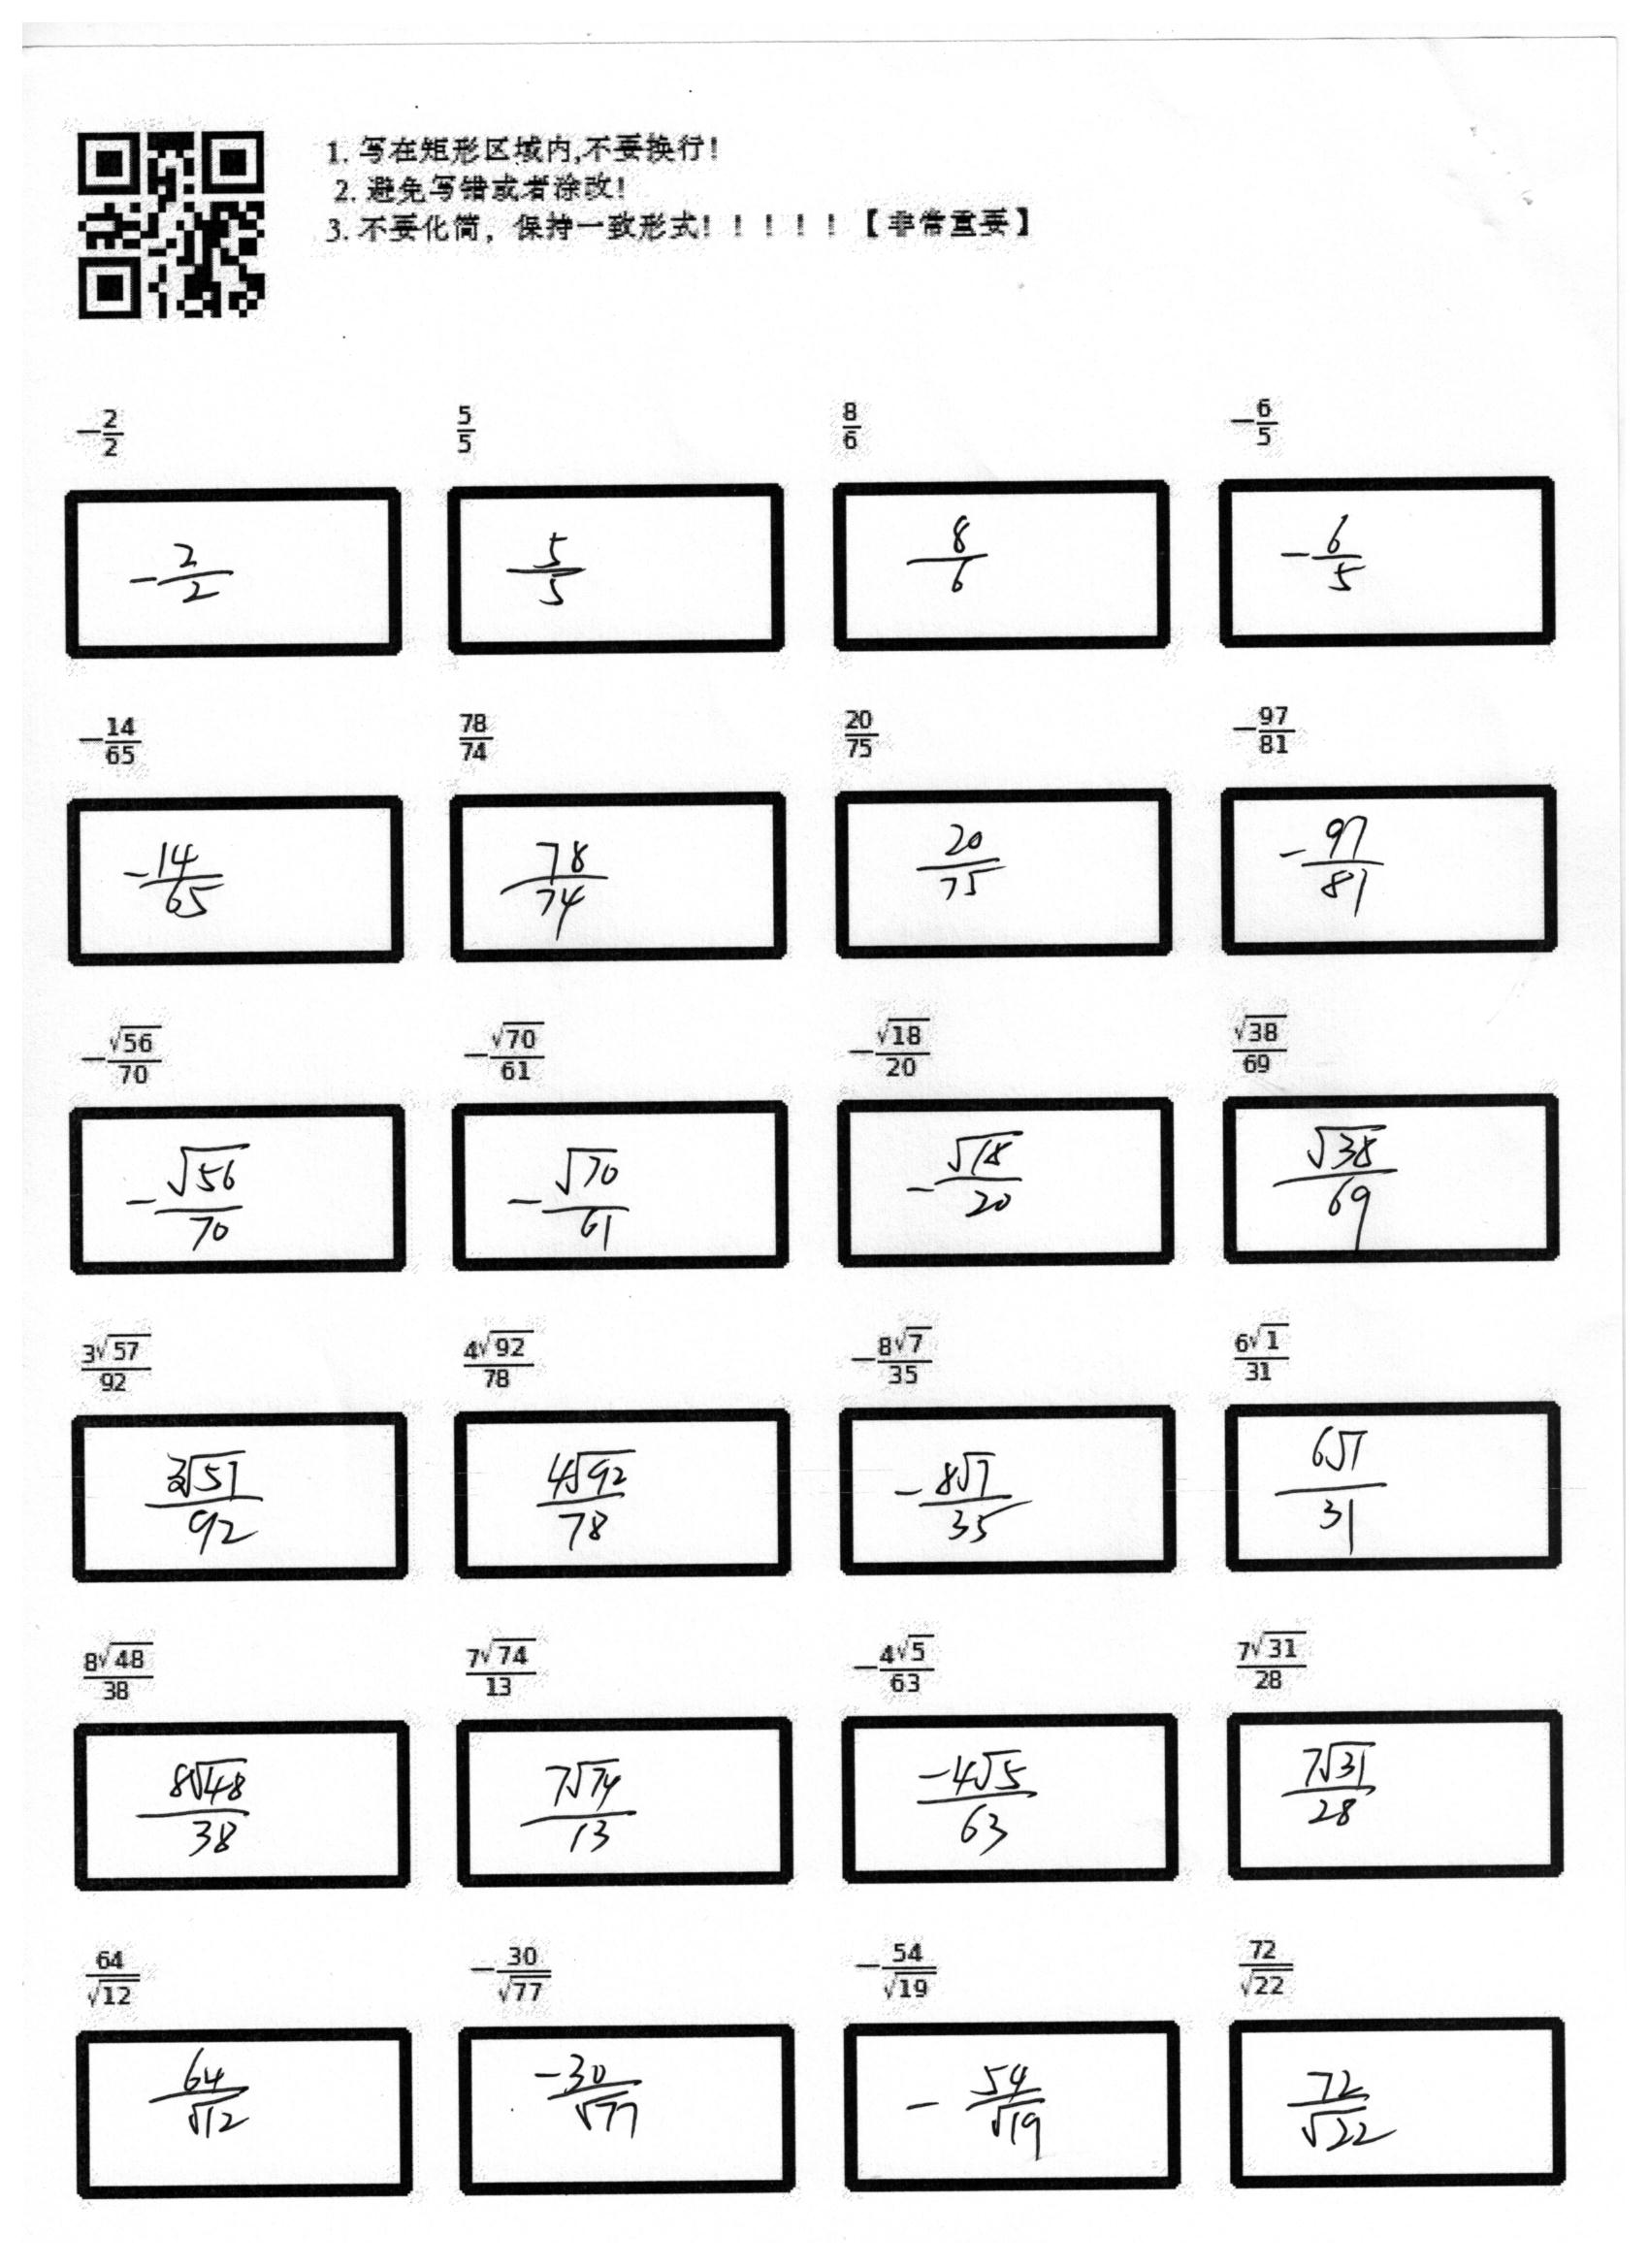 1. 写在矩形区域内,不要换行!
2. 避免写错或者涂改!
3. 不要化简，保持一致形式！！！！！【非常重要】
$-\frac{2}{2}$ $\frac{5}{5}$ $\frac{8}{6}$ $-\frac{6}{5}$
$-\frac{2}{2}$ $\frac{5}{5}$ $\frac{8}{6}$ $-\frac{6}{5}$
$-\frac{14}{65}$ $\frac{78}{74}$ $\frac{20}{75}$ $-\frac{97}{81}$
$-\frac{14}{65}$ $\frac{78}{74}$ $\frac{20}{75}$ $-\frac{97}{81}$
$-\frac{\sqrt{56}}{70}$ $-\frac{\sqrt{70}}{61}$ $-\frac{\sqrt{18}}{20}$ $\frac{\sqrt{38}}{69}$
$-\frac{\sqrt{56}}{70}$ $-\frac{\sqrt{70}}{61}$ $-\frac{\sqrt{18}}{20}$ $\frac{\sqrt{38}}{69}$
$\frac{3\sqrt{57}}{92}$ $\frac{4\sqrt{92}}{78}$ $-\frac{8\sqrt{7}}{35}$ $\frac{6\sqrt{1}}{31}$
$\frac{3\sqrt{57}}{92}$ $\frac{4\sqrt{92}}{78}$ $-\frac{8\sqrt{7}}{35}$ $\frac{6\sqrt{1}}{31}$
$\frac{8\sqrt{48}}{38}$ $\frac{7\sqrt{74}}{13}$ $-\frac{4\sqrt{5}}{63}$ $\frac{7\sqrt{31}}{28}$
$\frac{8\sqrt{48}}{38}$ $\frac{7\sqrt{74}}{13}$ $\frac{-4\sqrt{5}}{63}$ $\frac{7\sqrt{31}}{28}$
$\frac{64}{\sqrt{12}}$ $-\frac{30}{\sqrt{77}}$ $-\frac{54}{\sqrt{19}}$ $\frac{72}{\sqrt{22}}$
$\frac{64}{\sqrt{12}}$ $\frac{-30}{\sqrt{77}}$ $-\frac{54}{\sqrt{19}}$ $\frac{72}{\sqrt{22}}$